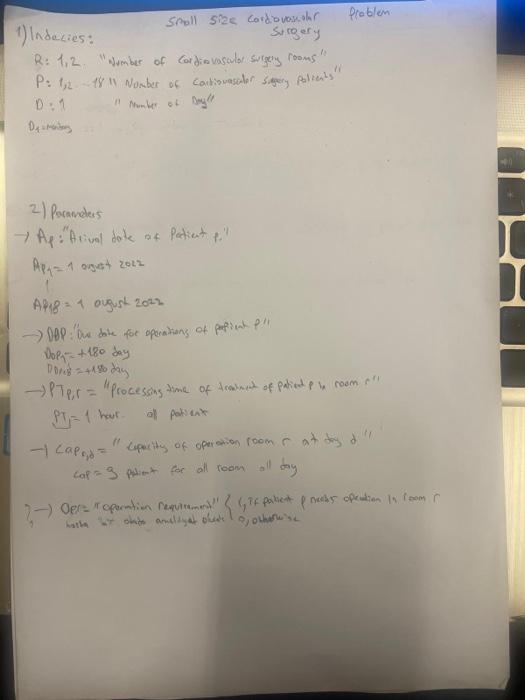 Small size Cardiovascular Problem
Surgery
1) Indecies:
R: 1,2. "Number of Cardiovascular surgery rooms"
P: 1,2 ... 18 "Number of Cardiovascular surgery patients"
D: 1 "Number of Day"
D1 = monday
2) Parameters
→ Ap: "Arival date of Patient p."
Ap1 = 1 agust 2022
Ap18 = 1 august 2022
→ DDP: "Due date for operations of patient P"
DDP1 = +180 day
DDP18 = +180 day
→ PTp,r = "Processing time of treatment of patient p in room r"
PT = 1 hour. all patient
→ Capr,d = "capacity of operation room r at day d"
Cap = 9 patient for all room all day
?→) Opr = "operation requirement" { 1, if patient p needs operation in room r
hasta bir oda ameliyat 0, otherwise